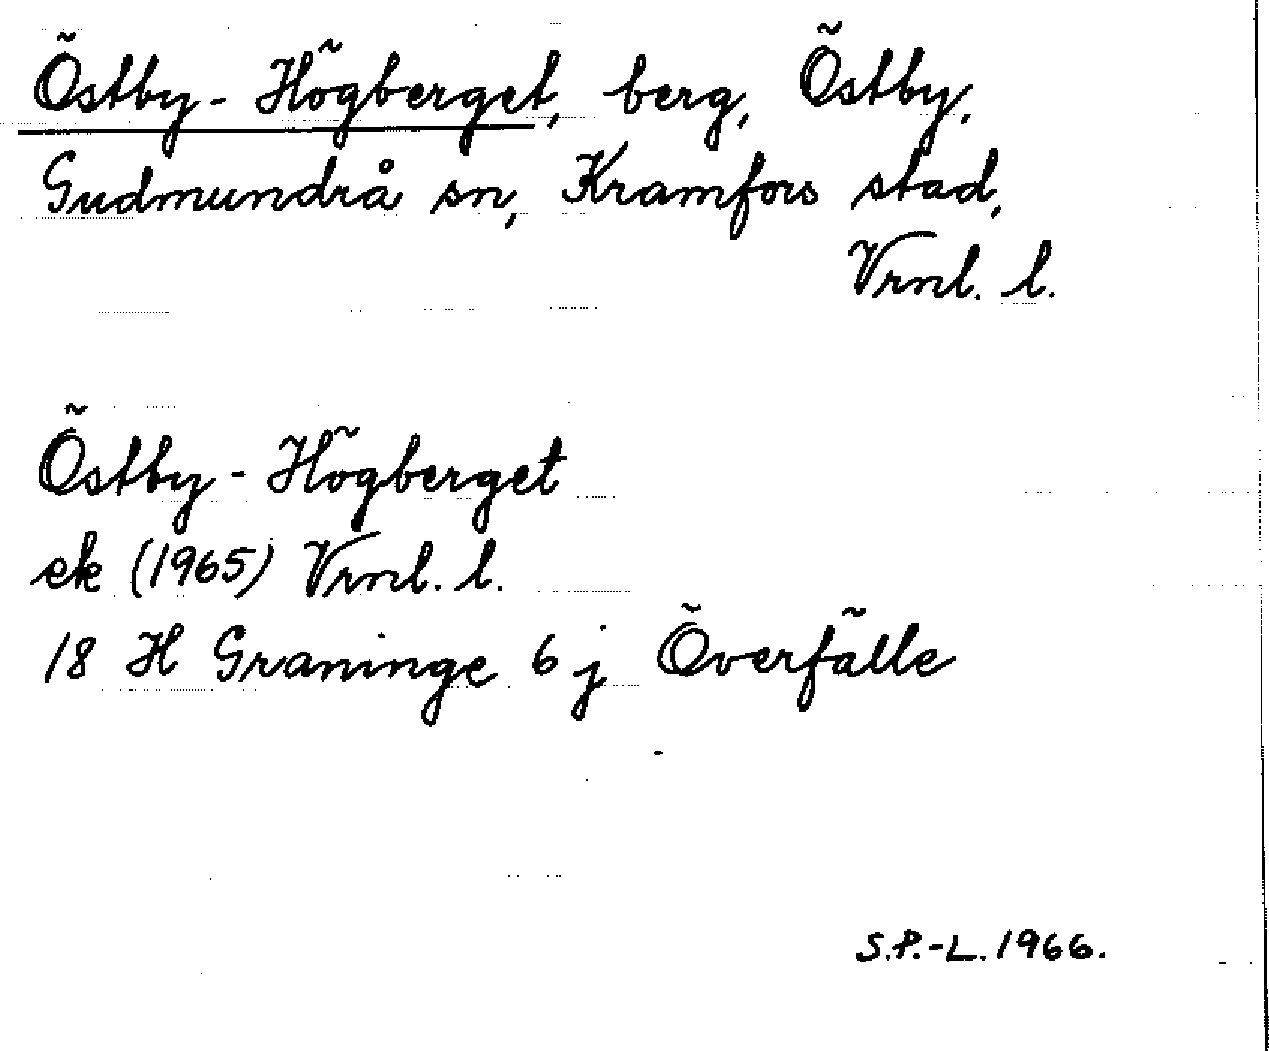 Östby-Högberget, berg, Östby,
Gudmundrå sn, Kramfors stad,
Vrnl. l.
Östby-Högberget
ek (1965) Vrnl. l.
18 H Graninge 6 j Överfälle
S.P.-L. 1966.